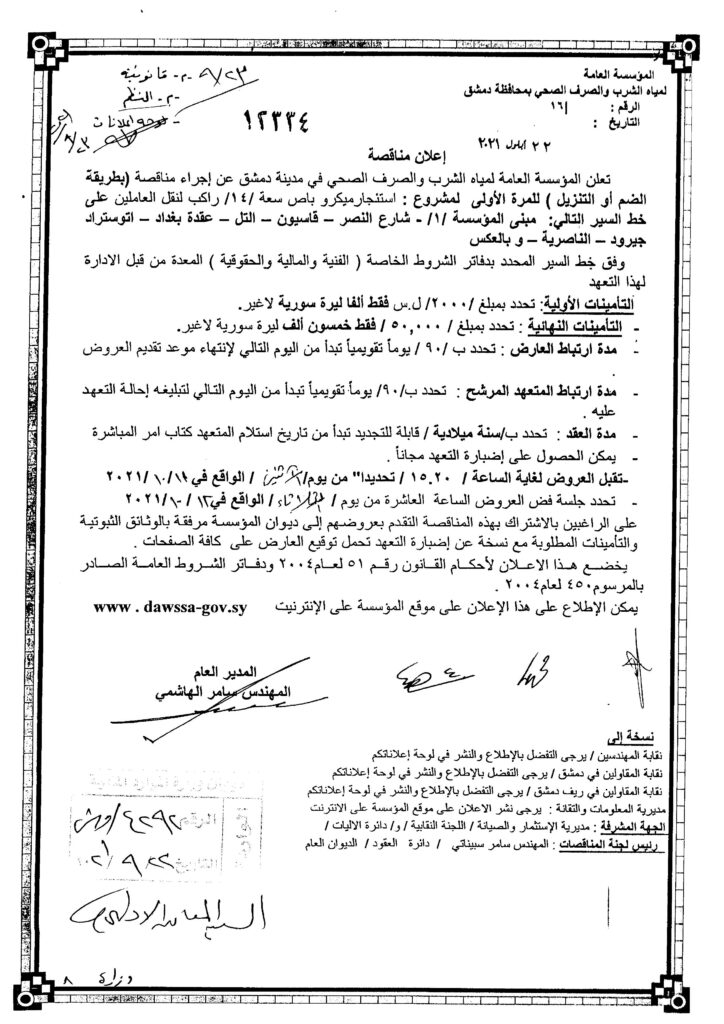 المؤسسة العامة
لمياه الشرب والصرف الصحي بمحافظة دمشق
الرقم : ١٦/
التاريخ :
٢٢ ايلول ٢٠٢١
١٢٣٣٤
٩/٢٣
إعلان مناقصة
تعلن المؤسسة العامة لمياه الشرب والصرف الصحي في مدينة دمشق عن إجراء مناقصة (بطريقة
الضم أو التنزيل ) للمرة الأولى لمشروع : استئجارميكرو باص سعة /١٤/ راكب لنقل العاملين على
خط السير التالي: مبنى المؤسسة /١/- شارع النصر – قاسيون – التل – عقدة بغداد – اتوستراد
جيرود – الناصرية – و بالعكس
وفق خط السير المحدد بدفاتر الشروط الخاصة ( الفنية والمالية والحقوقية ) المعدة من قبل الادارة
لهذا التعهد
التأمينات الأولية: تحدد بمبلغ /٢٠٠٠/ ل.س فقط ألفا ليرة سورية لاغير.
- التأمينات النهائية : تحدد بمبلغ / ٥٠,٠٠٠ / فقط خمسون ألف ليرة سورية لاغير.
- مدة ارتباط العارض : تحدد ب /٩٠/ يوماً تقويمياً تبدأ من اليوم التالي لإنتهاء موعد تقديم العروض
.
- مدة ارتباط المتعهد المرشح : تحدد ب/٩٠/ يوماً تقويمياً تبدأ من اليوم التالي لتبليغه إحالة التعهد
عليه .
- مدة العقد : تحدد ب/سنة ميلادية / قابلة للتجديد تبدأ من تاريخ استلام المتعهد كتاب امر المباشرة
- يمكن الحصول على إضبارة التعهد مجاناً .
-تقبل العروض لغاية الساعة / ١٥.٢٠ / تحديدا" من يوم/الاثنين / الواقع في ١١/ ١٠/ ٢٠٢١
- تحدد جلسة فض العروض الساعة العاشرة من يوم / الثلاثاء / الواقع في١٢/ ١٠/ ٢٠٢١
على الراغبين بالاشتراك بهذه المناقصة التقدم بعروضهم إلى ديوان المؤسسة مرفقة بالوثائق الثبوتية
والتأمينات المطلوبة مع نسخة عن إضبارة التعهد تحمل توقيع العارض على كافة الصفحات .
يخضع هذا الاعلان لأحكام القانون رقم ٥١ لعام ٢٠٠٤ ودفاتر الشروط العامة الصادر
بالمرسوم٤٥٠ لعام٢٠٠٤ .
يمكن الإطلاع على هذا الإعلان على موقع المؤسسة على الإنترنيت www . dawssa-gov.sy
المدير العام
المهندس سامر الهاشمي
نسخة إلى
نقابة المهندسين / يرجى التفضل بالإطلاع والنشر في لوحة إعلاناتكم
نقابة المقاولين في دمشق / يرجى التفضل بالإطلاع والنشر في لوحة إعلاناتكم
نقابة المقاولين في ريف دمشق / يرجى التفضل بالإطلاع والنشر في لوحة إعلاناتكم
مديرية المعلومات والتقانة : يرجى نشر الاعلان على موقع المؤسسة على الانترنت
الجهة المشرفة : مديرية الإستثمار والصيانة / اللجنة النقابية / و/ دائرة الاليات /
رئيس لجنة المناقصات : المهندس سامر سبيناتي / دائرة العقود / الديوان العام
الواردة
الرقم
التاريخ
وزارة ٨